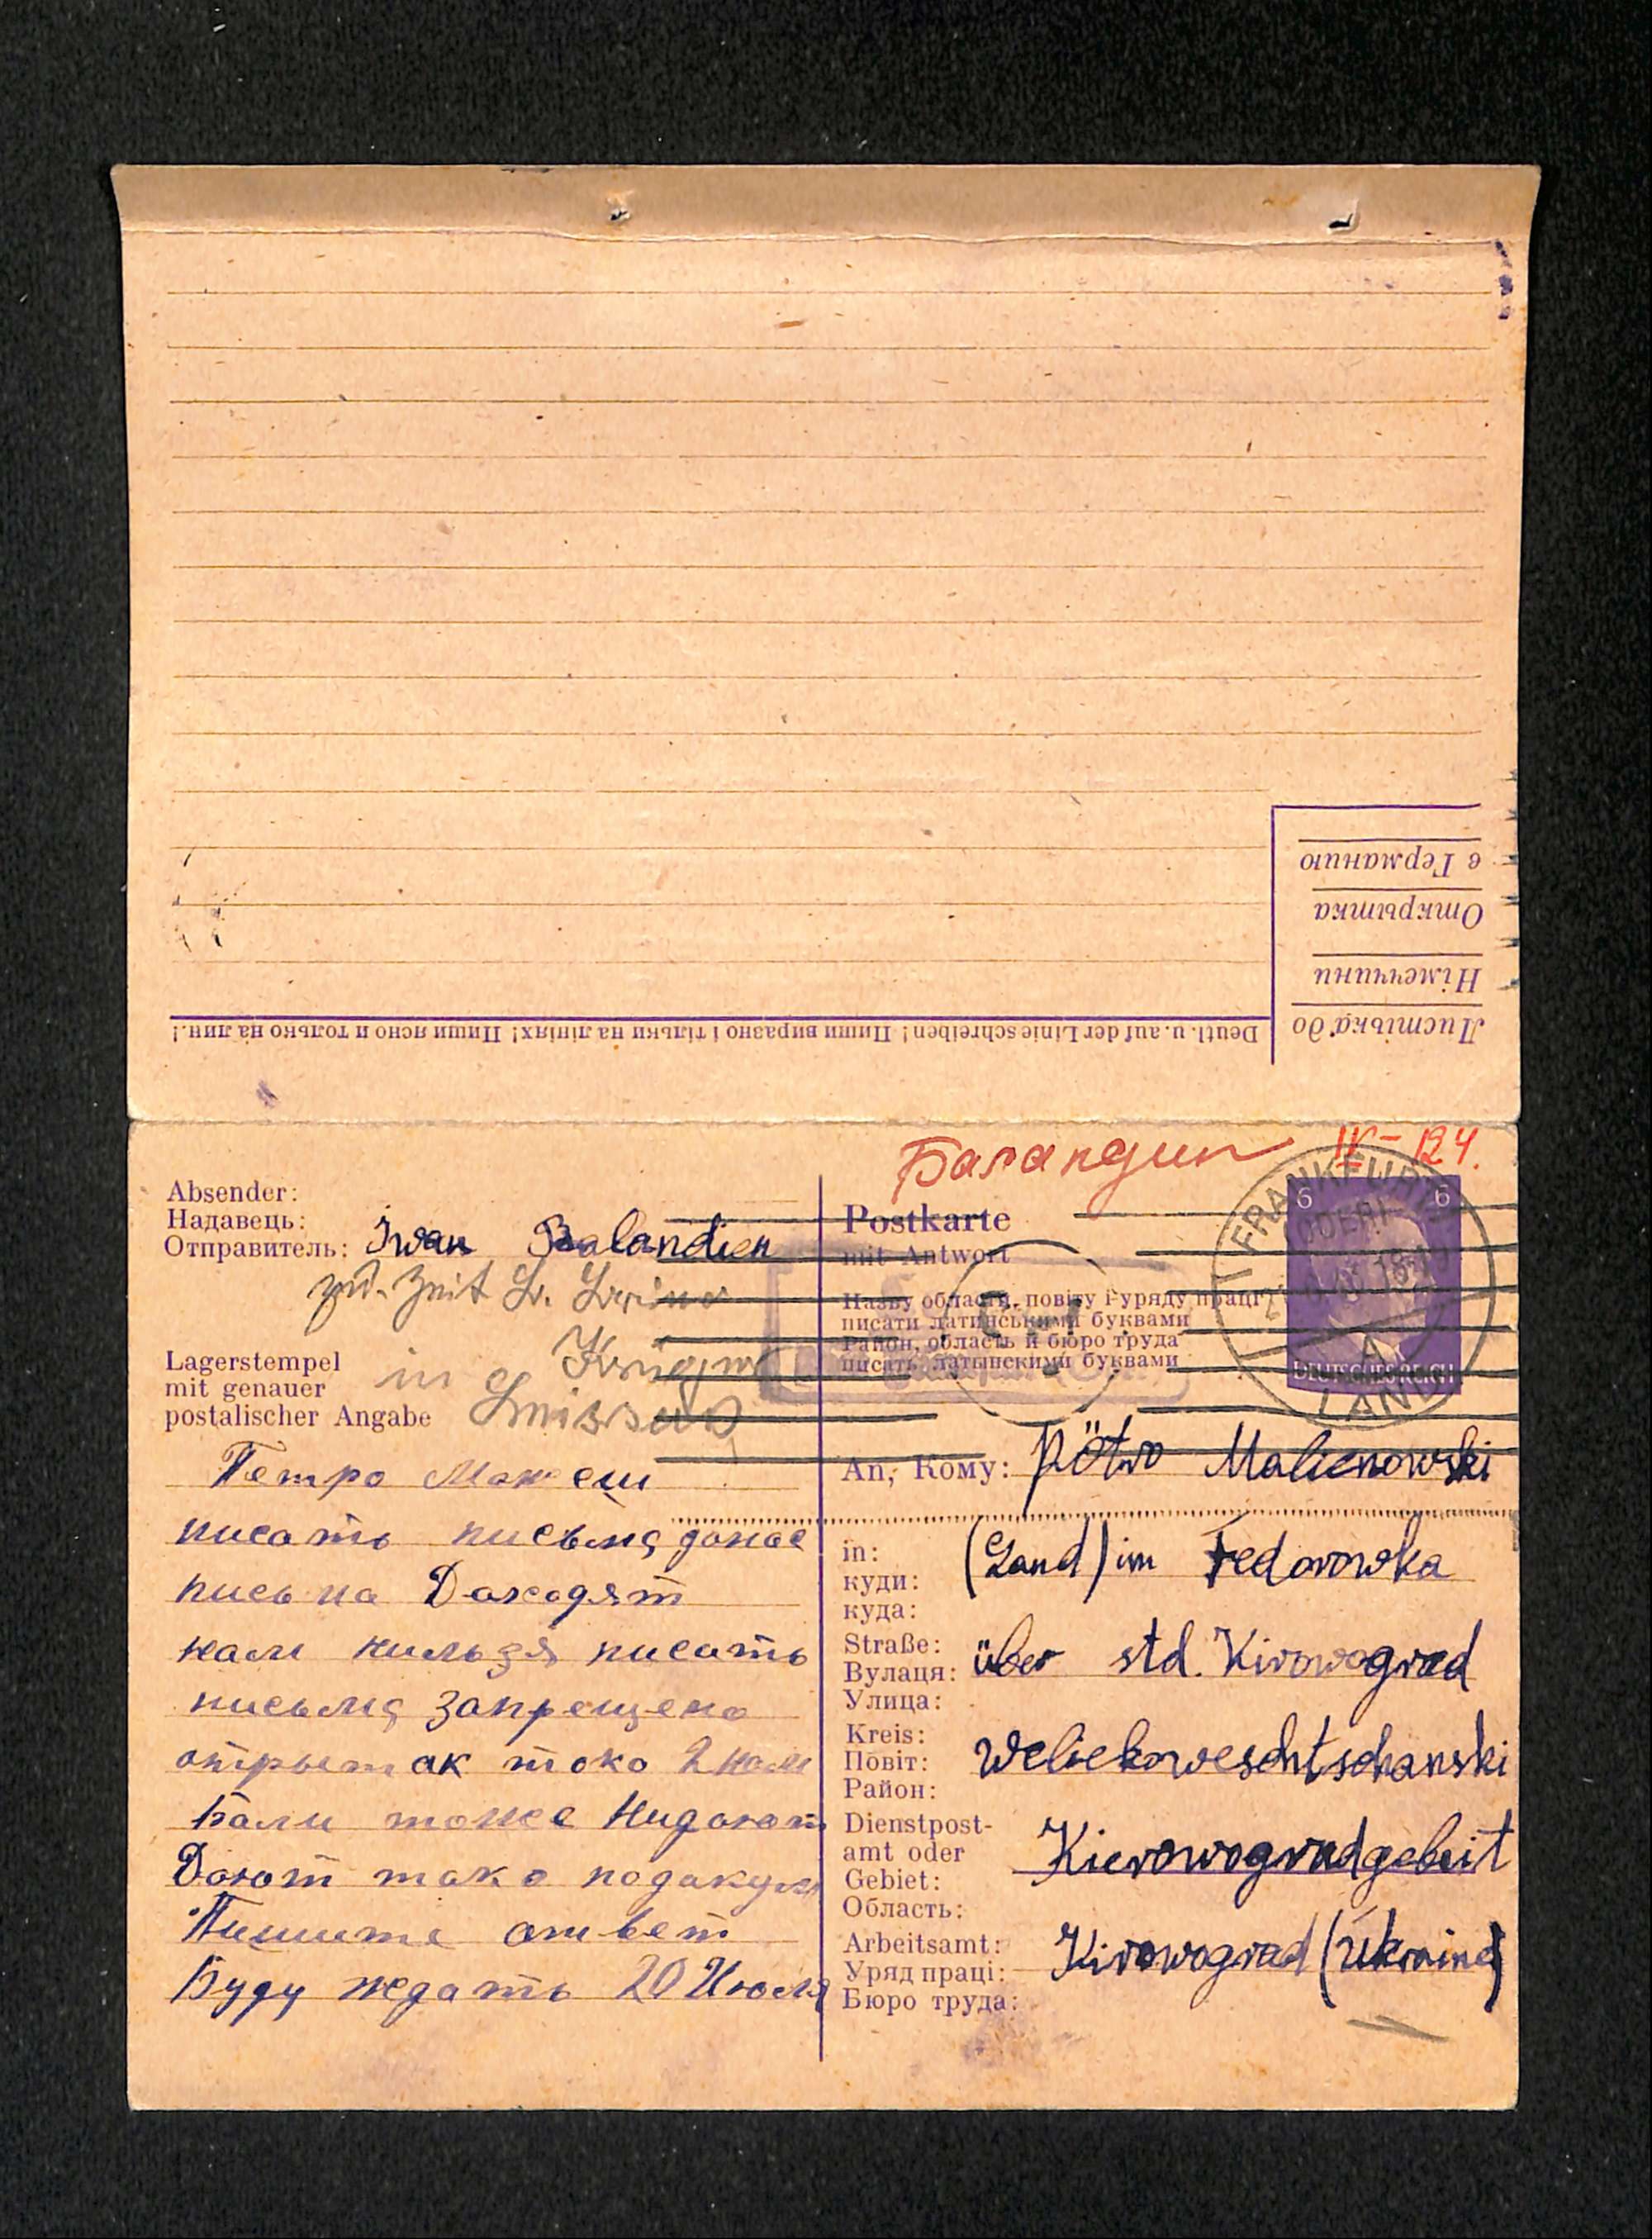 Листівка до
Німеччини
Открытка
в Германию
Deutl. u. auf der Linie schreiben! Пиши виразно і тільки на лініях! Пиши ясно и только на лин.!
Баландин IV-124.
Absender:
Надавець:
Отправитель: Iwan Balandien
zur. Zeit
in
Lagerstempel
mit genauer
postalischer Angabe
Петро Можеш
писать письма донас
письма Доходят
нам нильзя писать
письма запрещено
отрыт ак токо 2 нам
Бали тоже Нидают
Дают тако подакум
Пишите ответ
Буду ждать 20 Июля
Postkarte
mit Antwort
Назву области, повіту і уряду праці
писати латинськими буквами
Район, область и бюро труда
писать латынскими буквами
6 6
DEUTSCHES REICH
FRANKFURT
(ODER)
LAND
An, Кому: Pötro Malienowski
in:
куди:
куда:
(Land) im Fedorowka
Straße:
Вулаця:
Улица:
über std. Kirowograd
Kreis:
Повіт:
Район:
Weliekoweschtschanski
Dienstpost-
amt oder
Gebiet:
Область:
Kierowogradgebeit
Arbeitsamt:
Уряд праці:
Бюро труда:
Kirowograd (Ukraine)